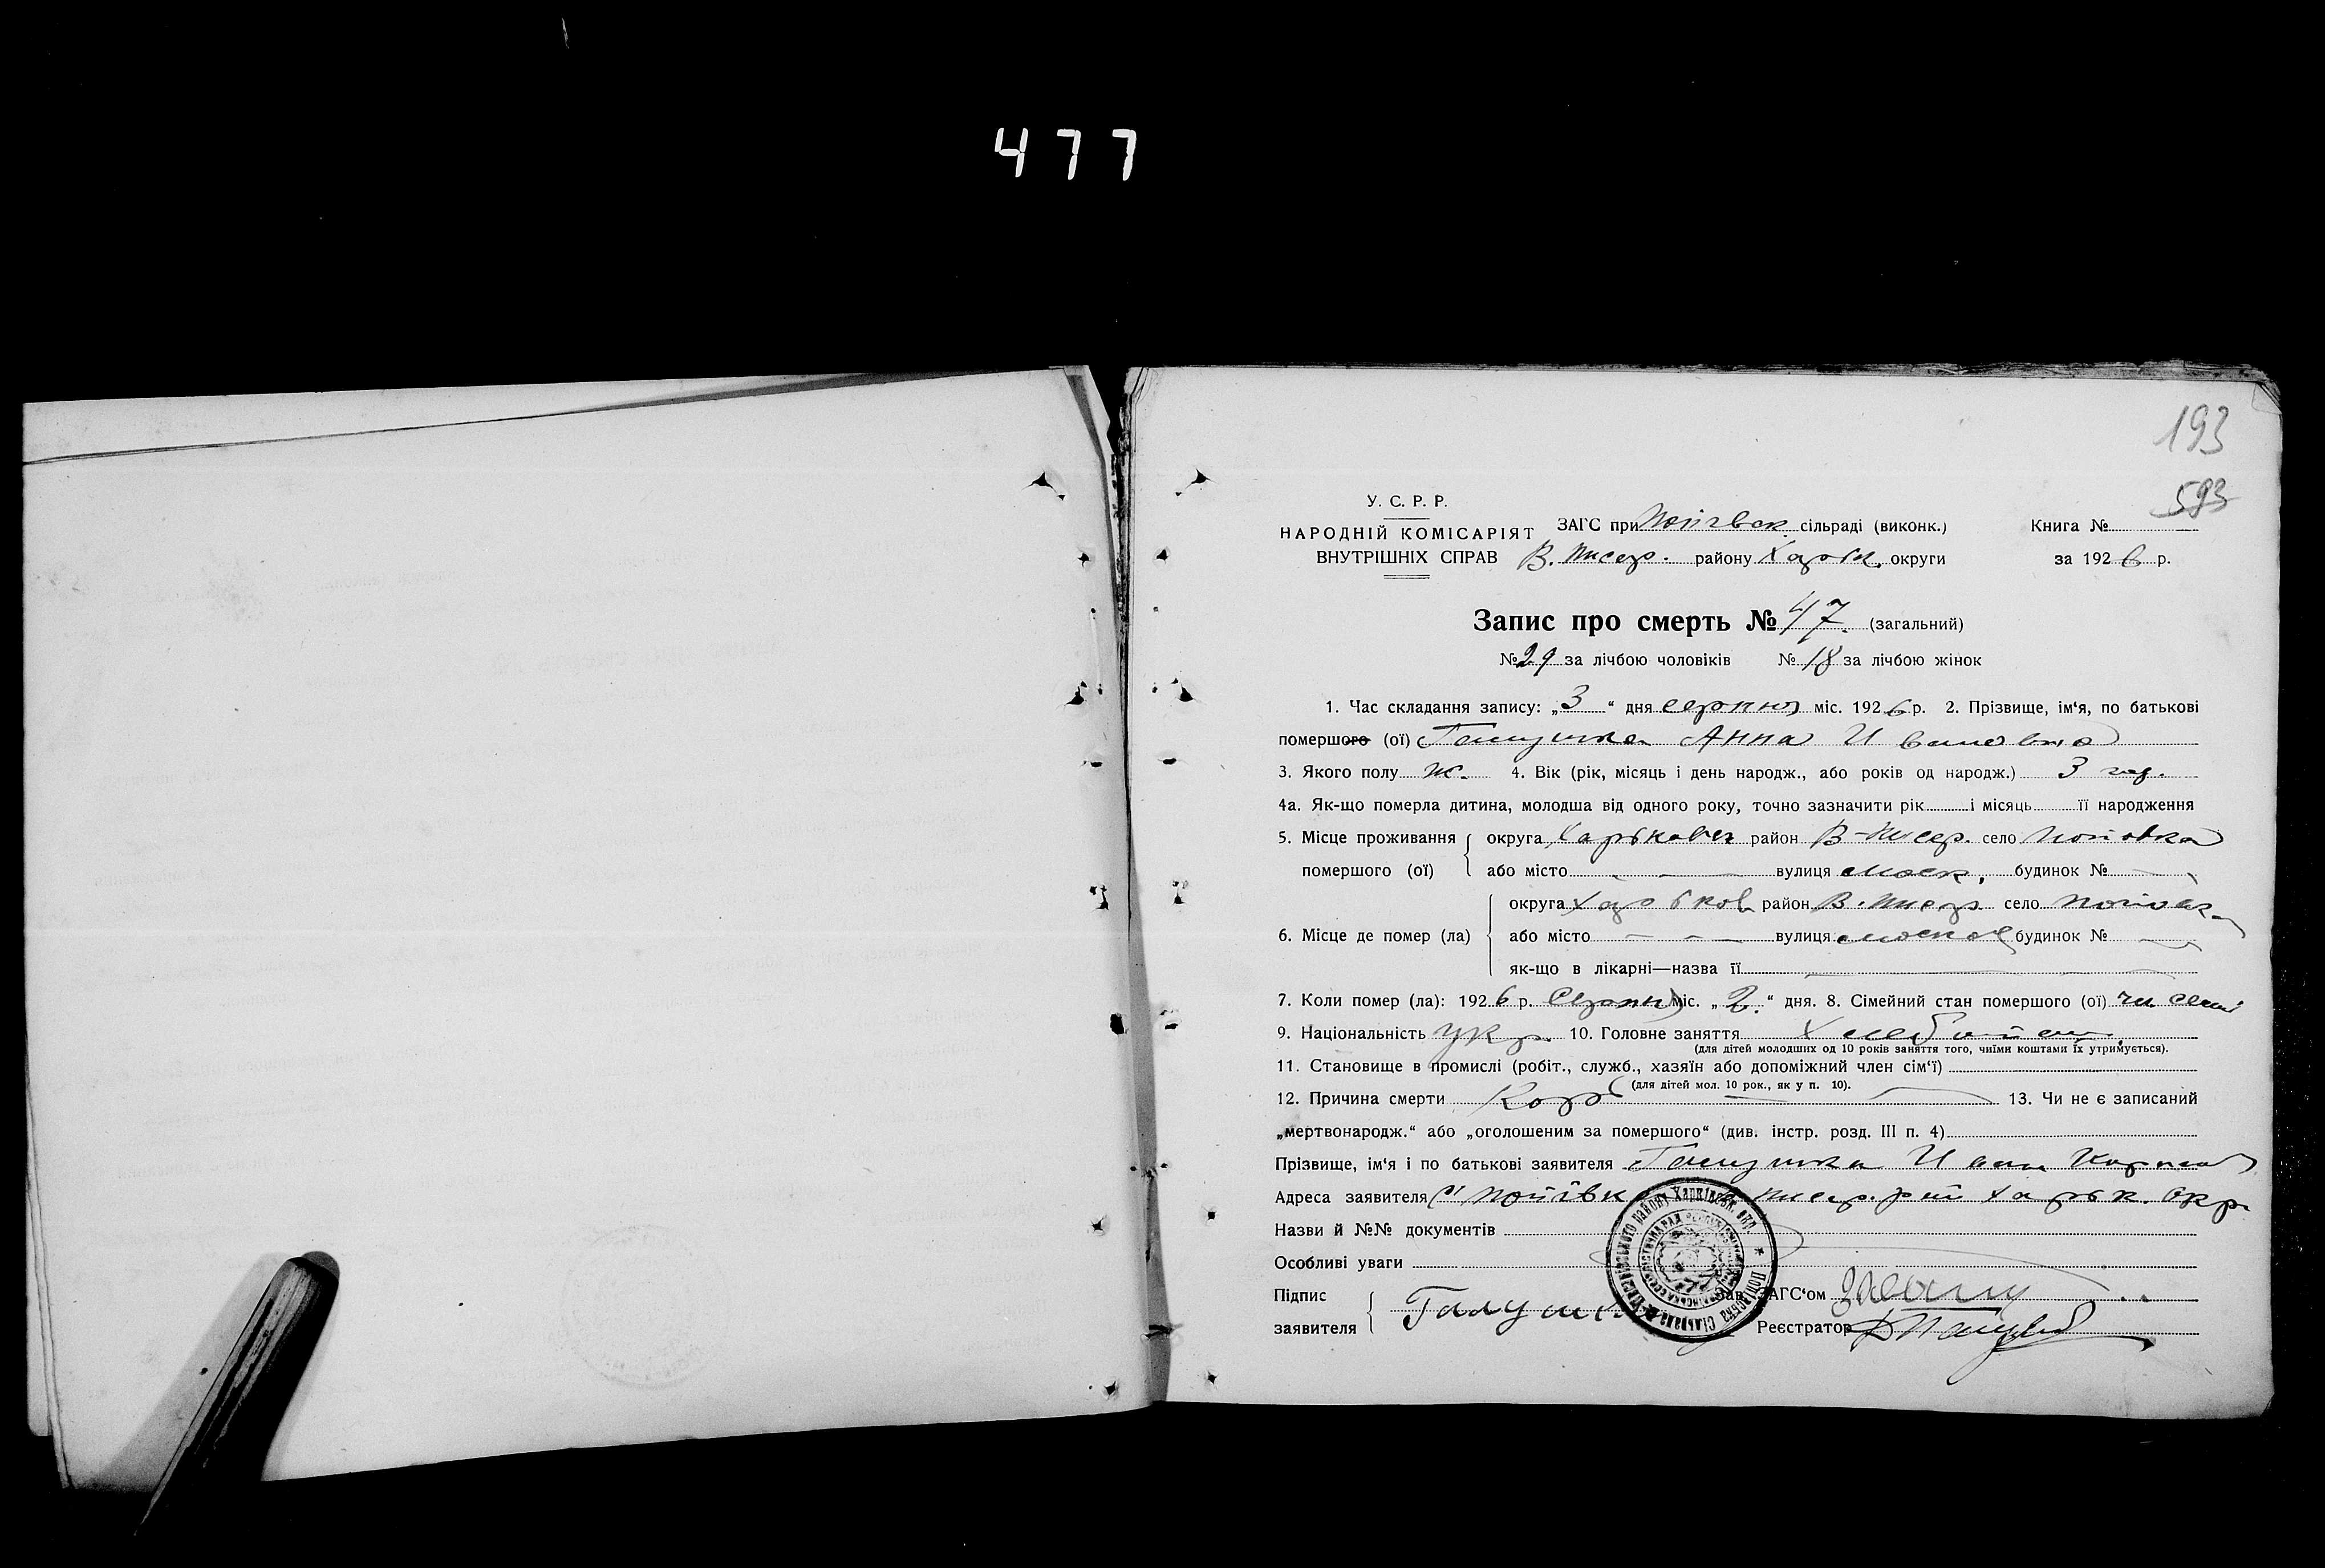 477
193
593
У. С. Р. Р.
НАРОДНІЙ КОМІСАРІЯТ
ВНУТРІШНІХ СПРАВ
ЗАГС при Попівск. сільраді (виконк.)
В. Писар. району Харьк. округи
Книга №
за 1926 р.
Запис про смерть № 47. (загальний)
№ 29 за лічбою чоловіків № 18 за лічбою жінок
1. Час складання запису: „3“ дня серпня міс. 1926 р. 2. Прізвище, ім‘я, по батькові
помершого (ої) Галушка Анна Ивановна
3. Якого полу ж. 4. Вік (рік, місяць і день народж., або років од народж.) 3 год.
4а. Як-що померла дитина, молодша від одного року, точно зазначити рік і місяць її народження
5. Місце проживання помершого (ої) округа Харьков район В-Писар. село Поповка
або місто — вулиця Моск. будинок № —
6. Місце де помер (ла) округа Харьков район В. Писар. село
або місто — — вулиця Москов будинок № —
як-що в лікарні—назва її
7. Коли помер (ла): 1926 р. Серпня міс. „2.“ дня. 8. Сімейний стан помершого (ої) чл. семі
9. Національність Укр. 10. Головне заняття
(для дітей молодших од 10 років заняття того, чиїми коштами їх утримується).
11. Становище в промислі (робіт., служб., хазяїн або допоміжний член сім‘ї)
(для дітей мол. 10 рок., як у п. 10).
12. Причина смерти Корь 13. Чи не є записаний
„мертвонародж.“ або „оголошеним за помершого“ (див. інстр. розд. III п. 4)
Прізвище, ім‘я і по батькові заявителя Галушка Иван
Адреса заявителя с. Попівк Писар. рай Харьк. Окр.
Назви й №№ документів
Особливі уваги
Підпис заявителя Галушка
Зав. ЗАГС‘ом
Реєстратор